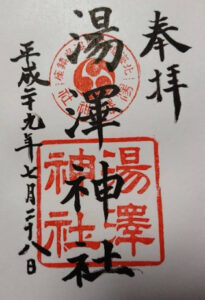 奉拝
湯澤神社
平成二十九年七月二十八日
湯澤
神社